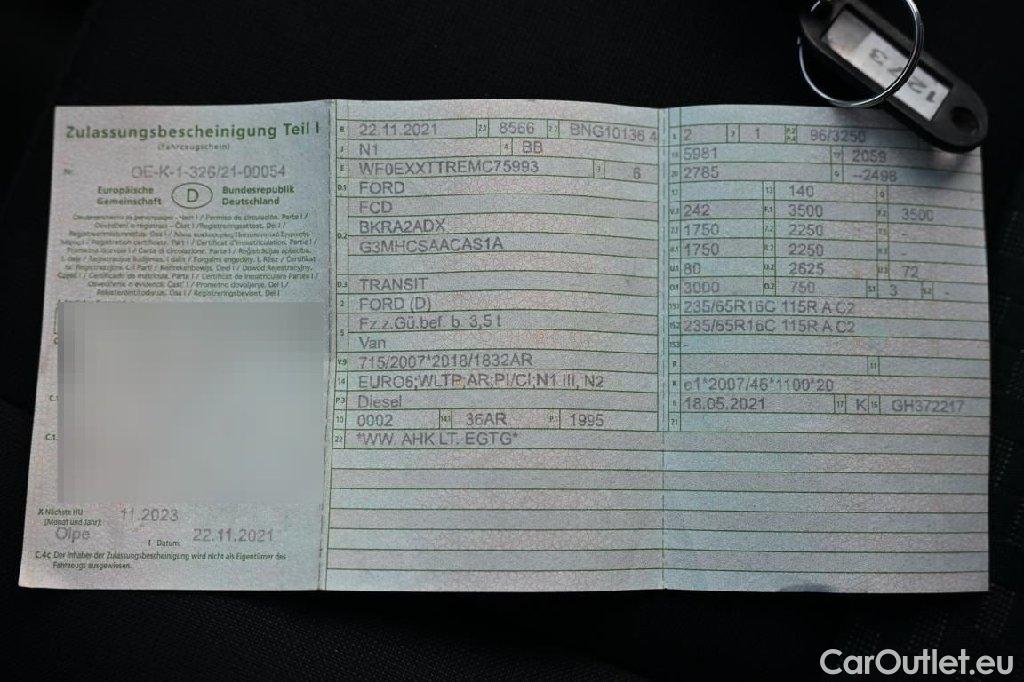 Zulassungsbescheinigung Teil I
(Fahrzeugschein)
Nr. OE-K-1-326/21-00054
Europäische Gemeinschaft
D
Bundesrepublik Deutschland
C.1.
C.1.
X Nächste HU (Monat und Jahr): 11.2023
Olpe
I Datum: 22.11.2021
C.4c Der Inhaber der Zulassungsbescheinigung wird nicht als Eigentümer des Fahrzeugs ausgewiesen.
B 22.11.2021 2.1 8566 2.2 BNG10136 4
J N1 4 BB
E WF0EXXTTREMC75993 3 6
D.1 FORD
FCD
D.2 BKRA2ADX
G3MHCSAACAS1A
D.3 TRANSIT
2 FORD (D)
5 Fz.z.Gü.bef. b. 3,5 t
Van
V.9 715/2007*2018/1832AR
14 EURO6;WLTP;AR;PI/CI;N1 III, N2
P.3 Diesel
10 0002 14.1 36AR P.1 1995
22 *WW. AHK LT. EGTG*
L 2 9 1 P.2 P.4 96/3250
18 5981 19 2059
20 2785 G --2498
12 13 140 Q
V.7 242 F.1 3500 F.2 3500
7.1 1750 7.2 2250 7.3 -
8.1 1750 8.2 2250 8.3 -
U.1 80 U.2 2625 U.3 72
O.1 3000 O.2 750 S.1 3 S.2 -
15.1 235/65R16C 115R A C2
15.2 235/65R16C 115R A C2
15.3 -
R 11
K e1*2007/46*1100*20
6 18.05.2021 17 K 16 GH372217
21
1273
CarOutlet.eu